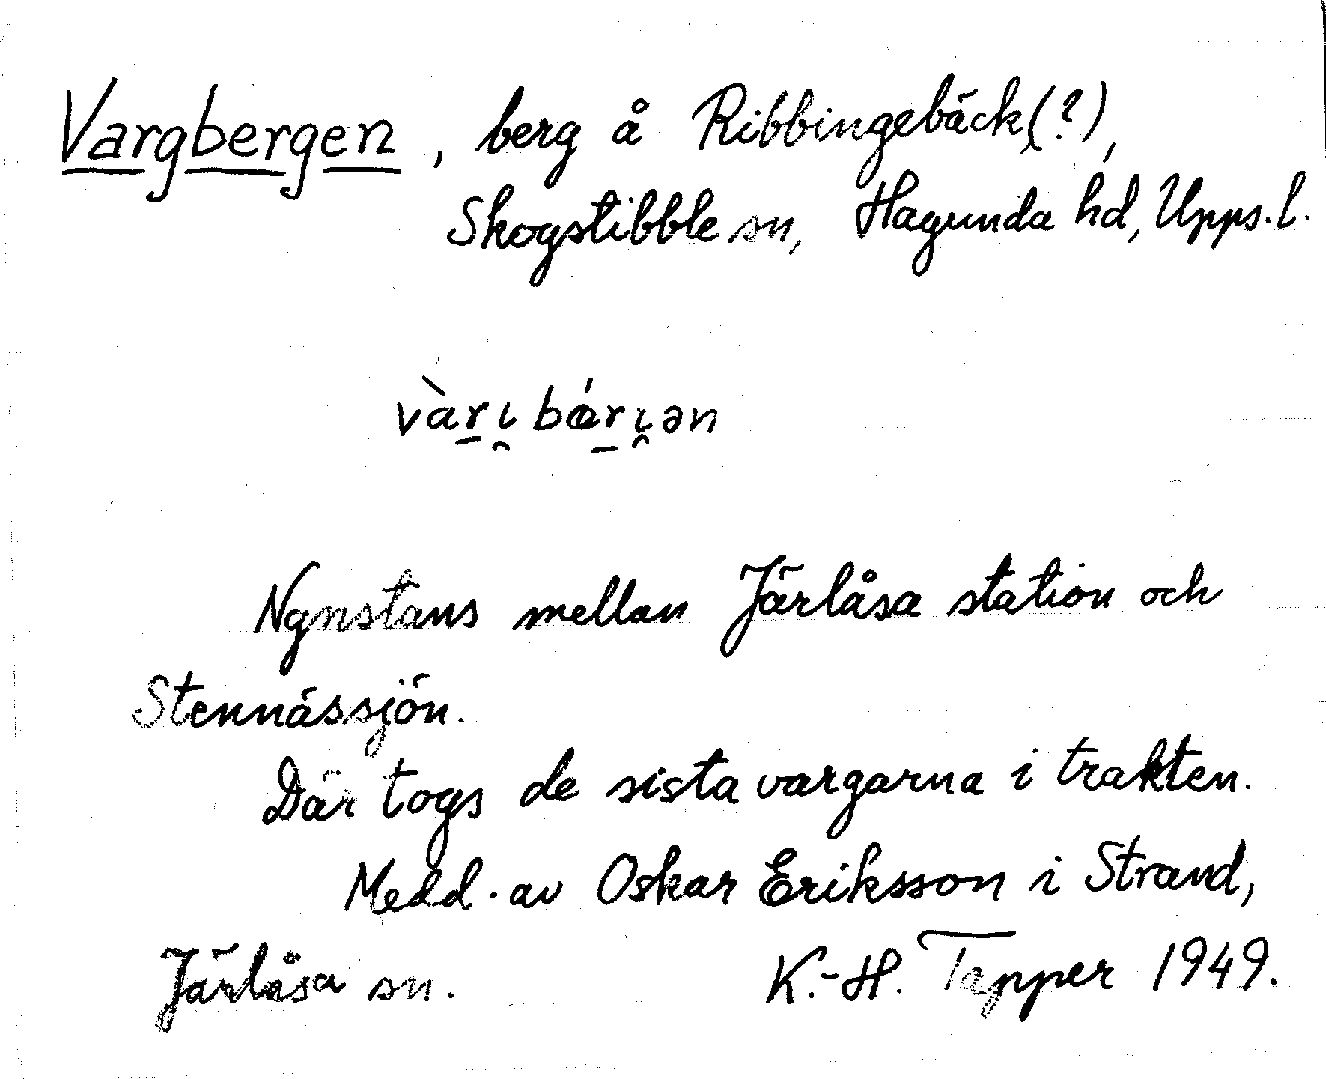 Vargbergen, berg å Ribbingebäck(?),
Skogstibble sn, Hagunda hd, Upps. l.
vàr̠i̯bǿr̠i̯ən
Ngnstans mellan Järlåsa station och
Stennässjön.
Där togs de sista vargarna i trakten.
Medd. av Oskar Eriksson i Strand,
Järlåsa sn. K.-H. Tapper 1949.